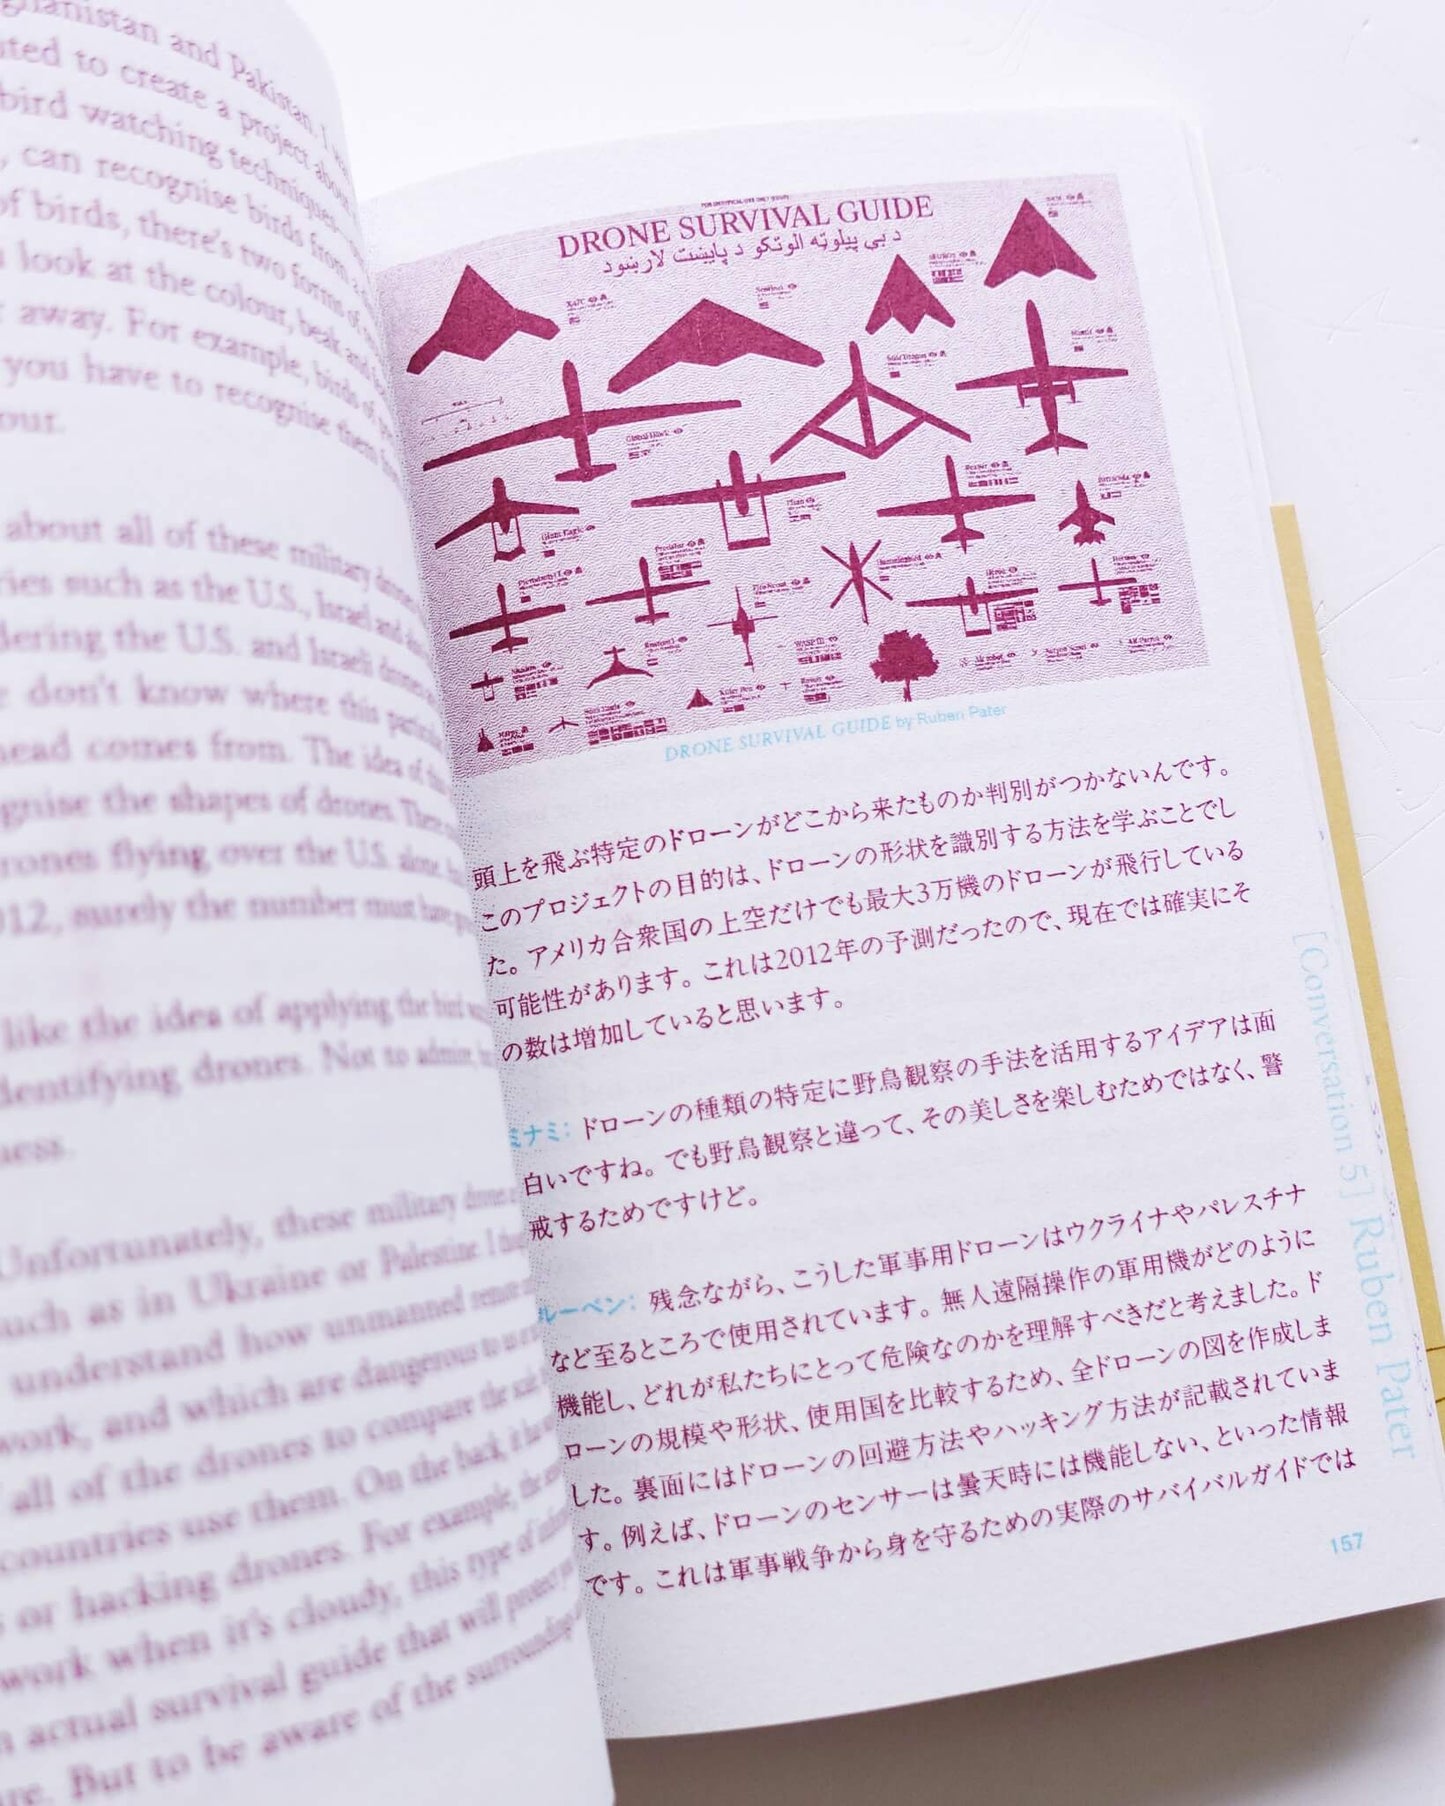 ghanistan and Pakistan. I
uted to create a project about
bird watching techniques
, can recognise birds from a
of birds, there's two forms of
u look at the colour, beak and
r away. For example, birds of
you have to recognise them from
our.
about all of these military drones
ries such as the U.S., Israel and
dering the U.S. and Israeli drones
e don't know where this particular
head comes from. The idea of this
gnise the shapes of drones. There
rones flying over the U.S. alone.
012, surely the number must have
like the idea of applying the bird
dentifying drones. Not to admire,
ness.
Unfortunately, these military drones
such as in Ukraine or Palestine. I
understand how unmanned remote
work, and which are dangerous to us
all of the drones to compare the
countries use them. On the back, it
s or hacking drones. For example, the
work when it's cloudy, this type of
n actual survival guide that will protect
are. But to be aware of the surrounding
DRONE SURVIVAL GUIDE
د بې پیلوټه الوتکو د پایښت لارښود
X47C
Sentinel
Global Hawk
Mantis
Giant Eagle
Predator
Reaper
Barracuda
Hummingbird
Fire Scout
Hermes
WASP III
Killer Bee
Raven
AR Parrot
DRONE SURVIVAL GUIDE by Ruben Pater
頭上を飛ぶ特定のドローンがどこから来たものか判別がつかないんです。
このプロジェクトの目的は、ドローンの形状を識別する方法を学ぶことでし
た。アメリカ合衆国の上空だけでも最大3万機のドローンが飛行している
可能性があります。これは2012年の予測だったので、現在では確実にそ
の数は増加していると思います。
ミナミ: ドローンの種類の特定に野鳥観察の手法を活用するアイデアは面
白いですね。でも野鳥観察と違って、その美しさを楽しむためではなく、警
戒するためですけど。
ルーベン: 残念ながら、こうした軍事用ドローンはウクライナやパレスチナ
など至るところで使用されています。無人遠隔操作の軍用機がどのように
機能し、どれが私たちにとって危険なのかを理解すべきだと考えました。ド
ローンの規模や形状、使用国を比較するため、全ドローンの図を作成しま
した。裏面にはドローンの回避方法やハッキング方法が記載されていま
す。例えば、ドローンのセンサーは曇天時には機能しない、といった情報
です。これは軍事戦争から身を守るための実際のサバイバルガイドでは
[Conversation 5] Ruben Pater
157